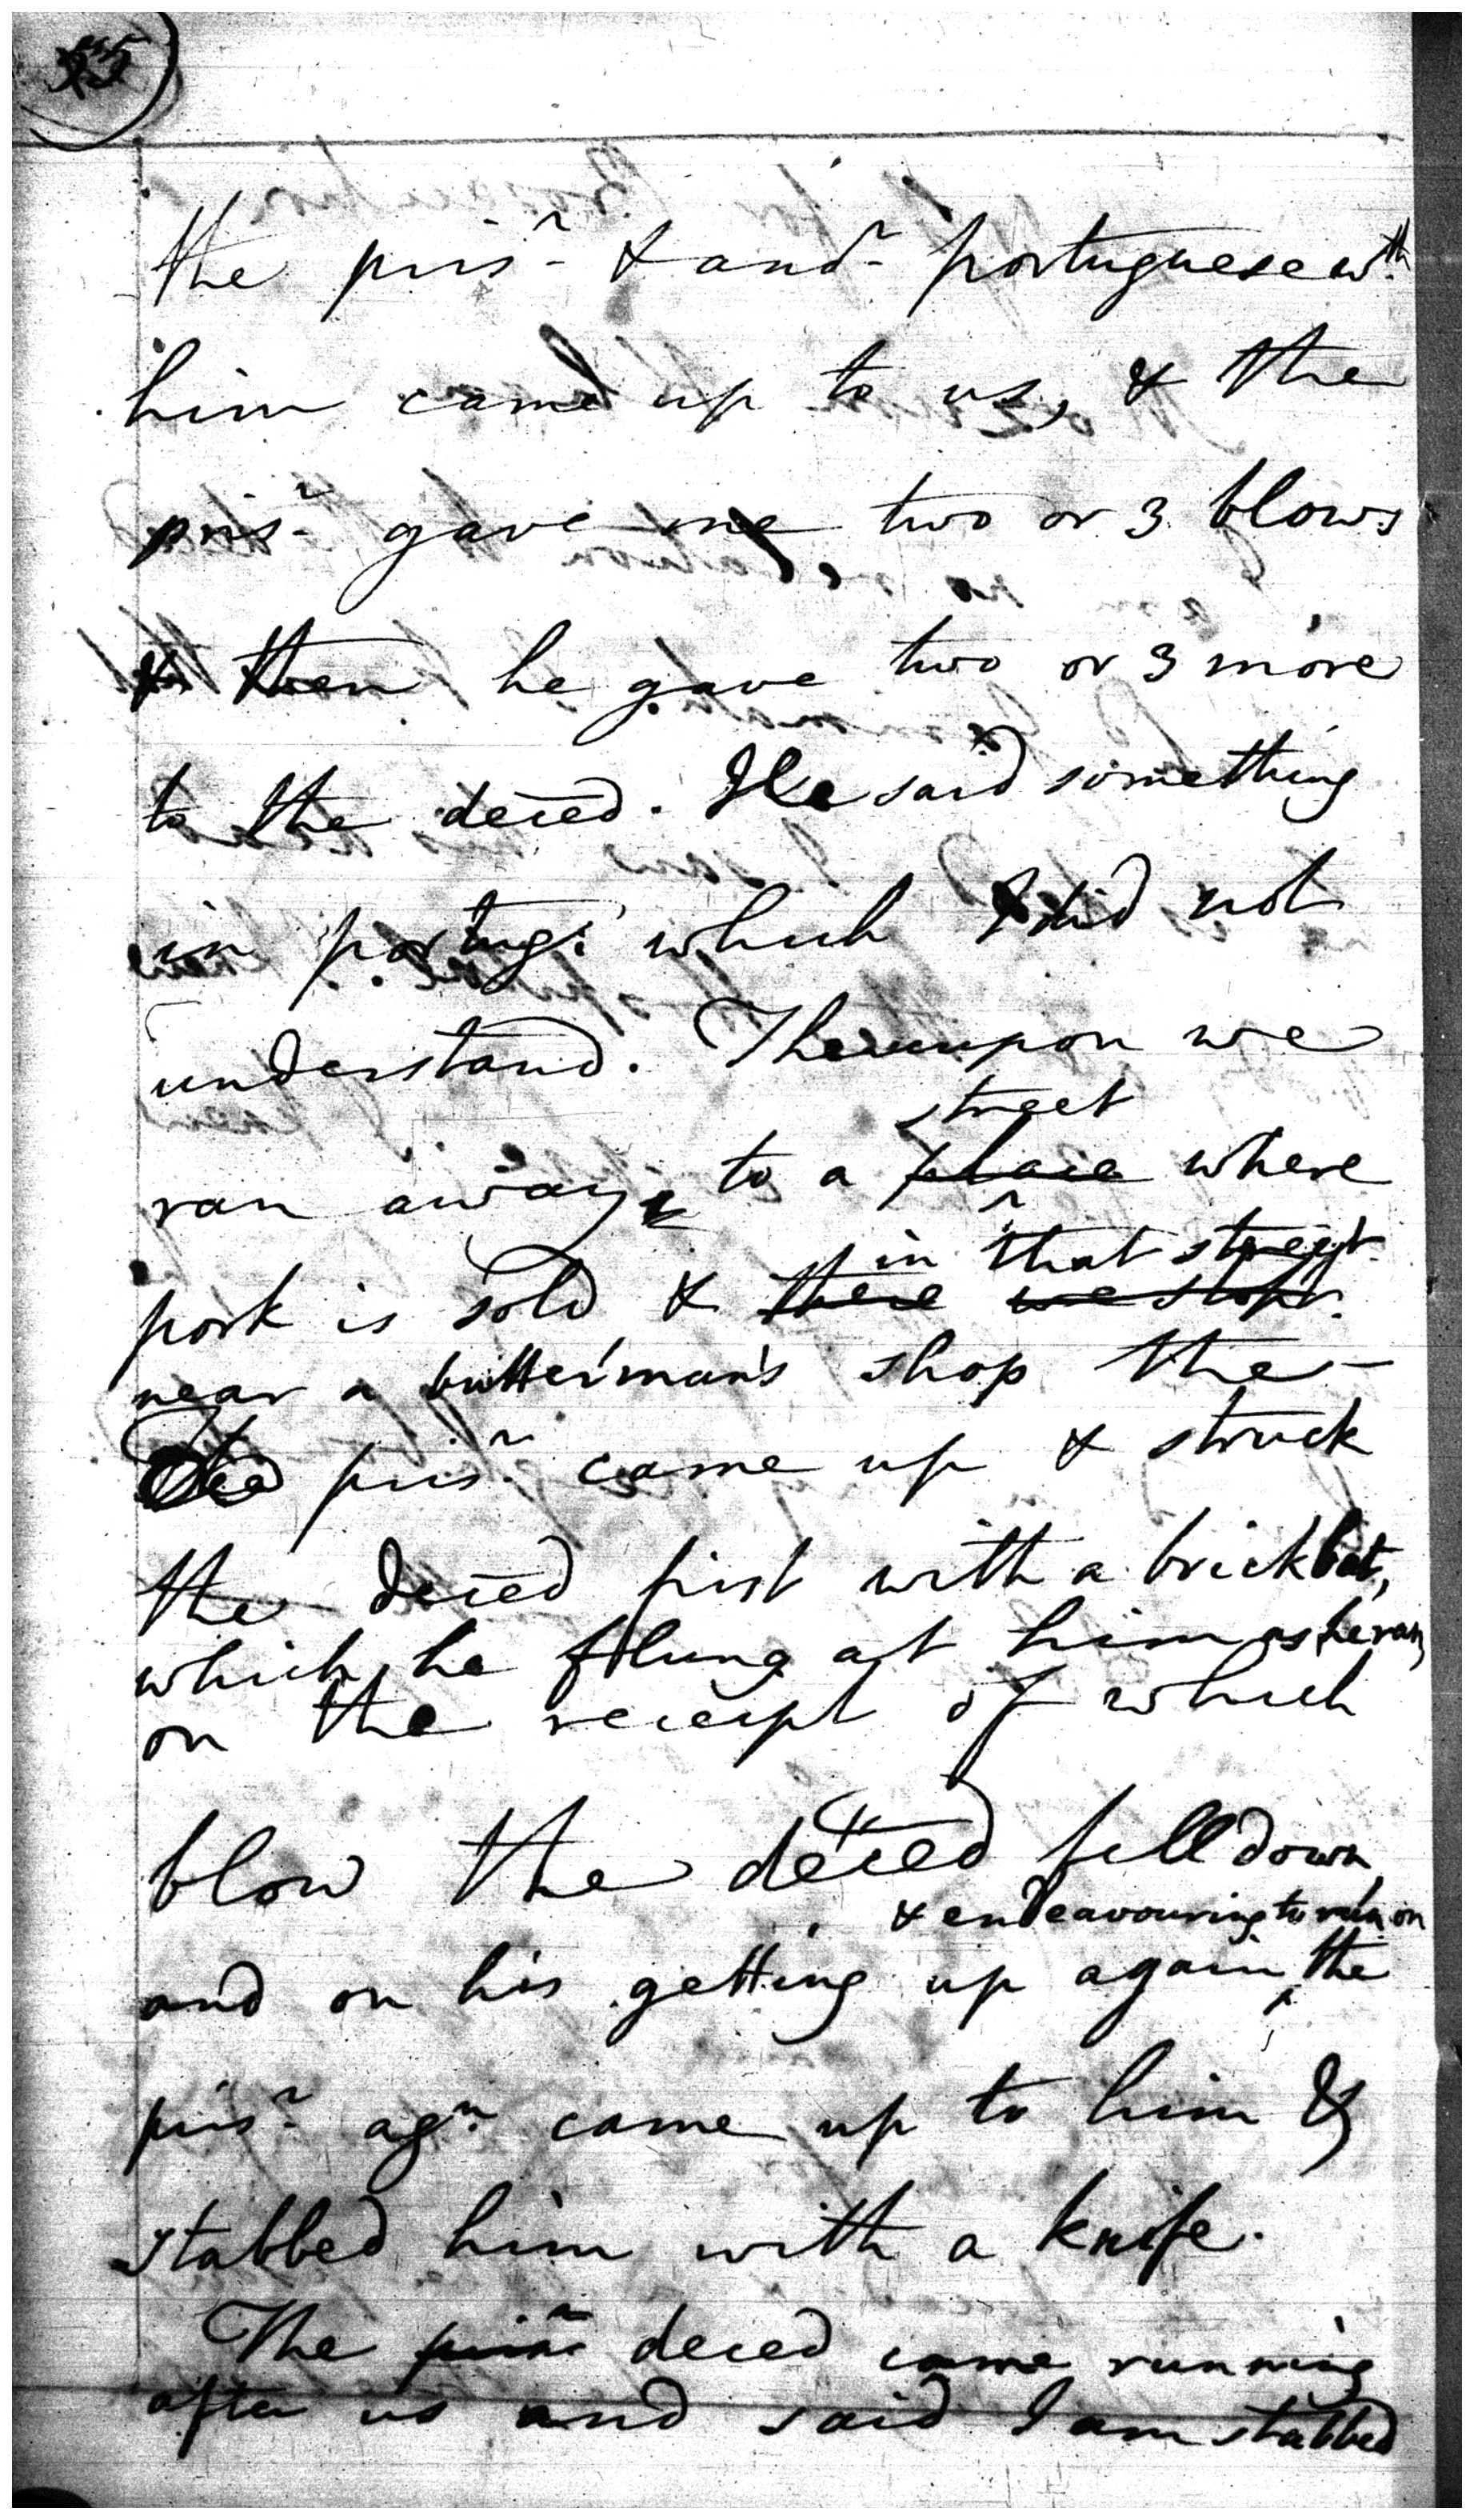 the pris^r & and^r portuguese w^th
him came up to us, & the
pris^r gave me two or 3 blows
& then he gave two or 3 more
to the deced. He said something
in portug: which I did not
understand. Thereupon we
street
ran away, to a place where
in that street
pork is sold & there we stopt.
near a butterman's shop the
The pris^r came up & struck
the deced first with a brickbat,
which he flung at him as he ran,
on the receipt of which
blow the deced fell down
& endeavouring to run on
and on his getting up again, the
pris^r ag^n came up to him &
stabbed him with a knife.
The pris^r deced came running
after us and said I am stabbed